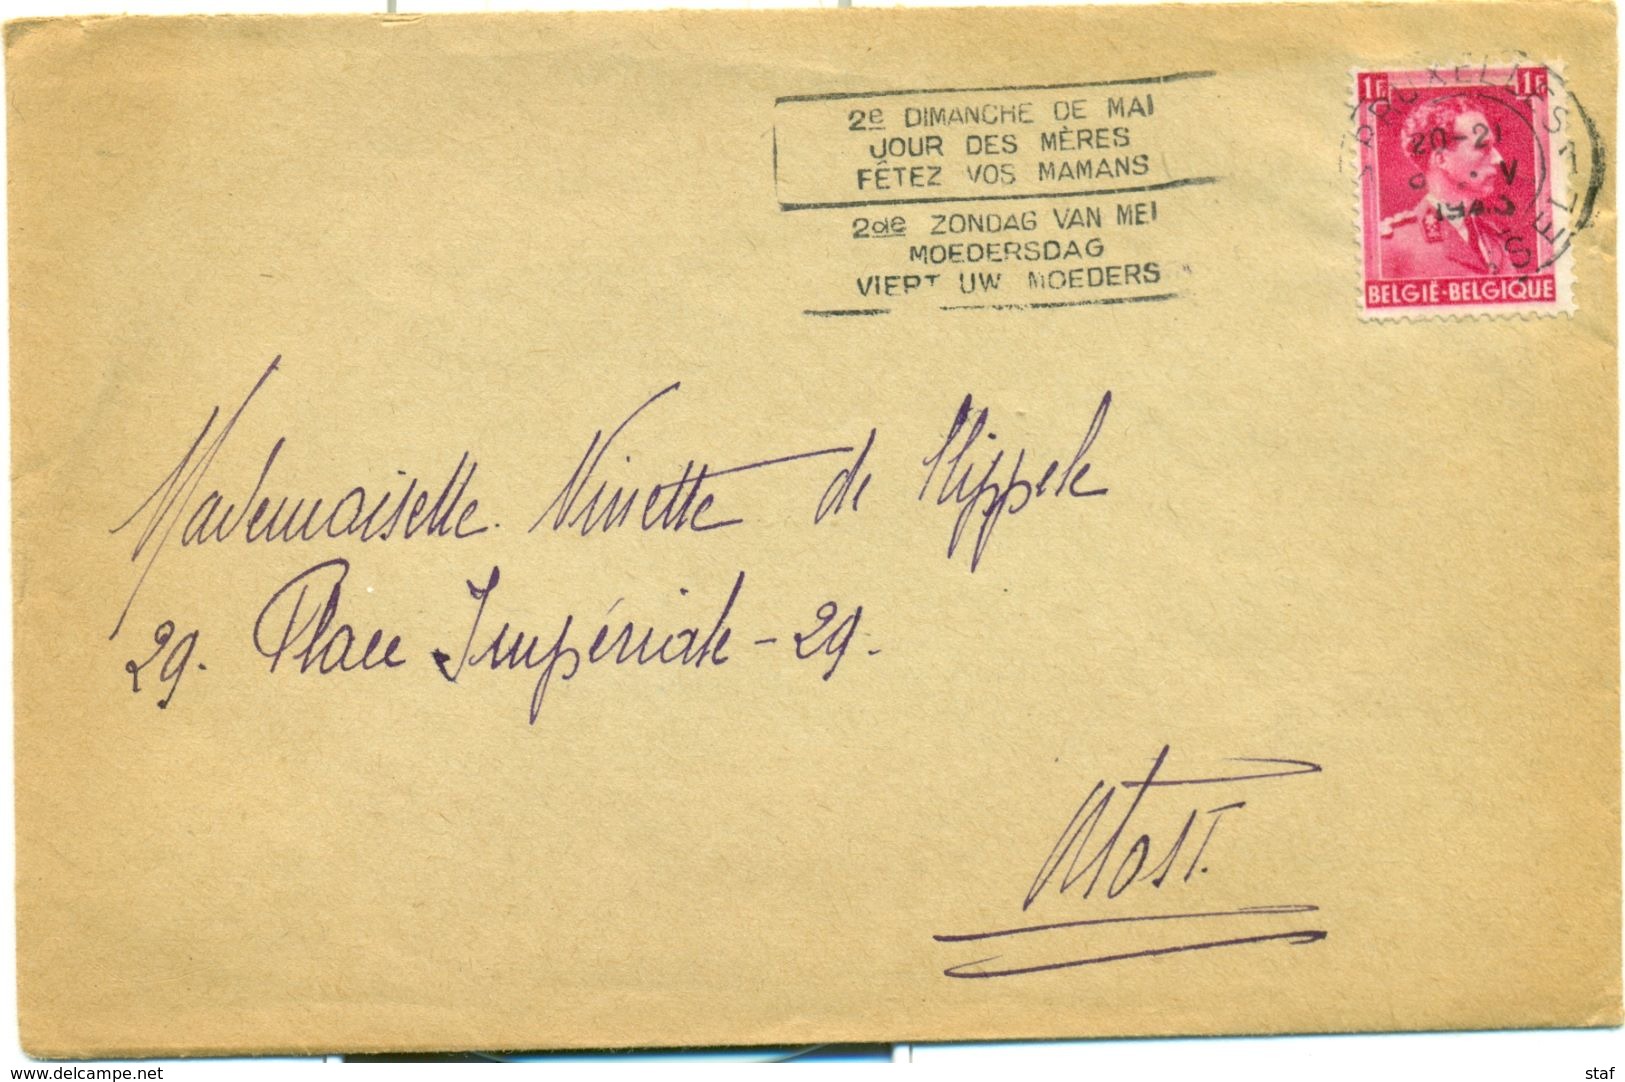 2e DIMANCHE DE MAI
JOUR DES MÈRES
FÊTEZ VOS MAMANS
2de ZONDAG VAN MEI
MOEDERSDAG
VIERT UW MOEDERS
1F 1F
BRUXELLES
20-21
V
1943
BELGIË-BELGIQUE
Mademoiselle Ninette de
29. Place Impériale - 29.
www.delcampe.net
staf